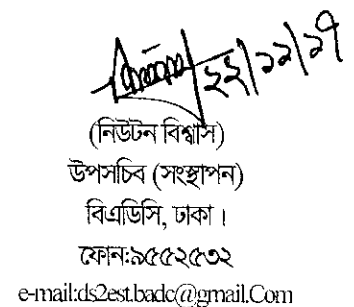 ২২/১১/২৭
(নিউটন বিশ্বাস)
উপসচিব (সংস্থাপন)
বিএডিসি, ঢাকা।
ফোন:৯৫৫২৫৩২
e-mail:ds2est.badc@gmail.Com